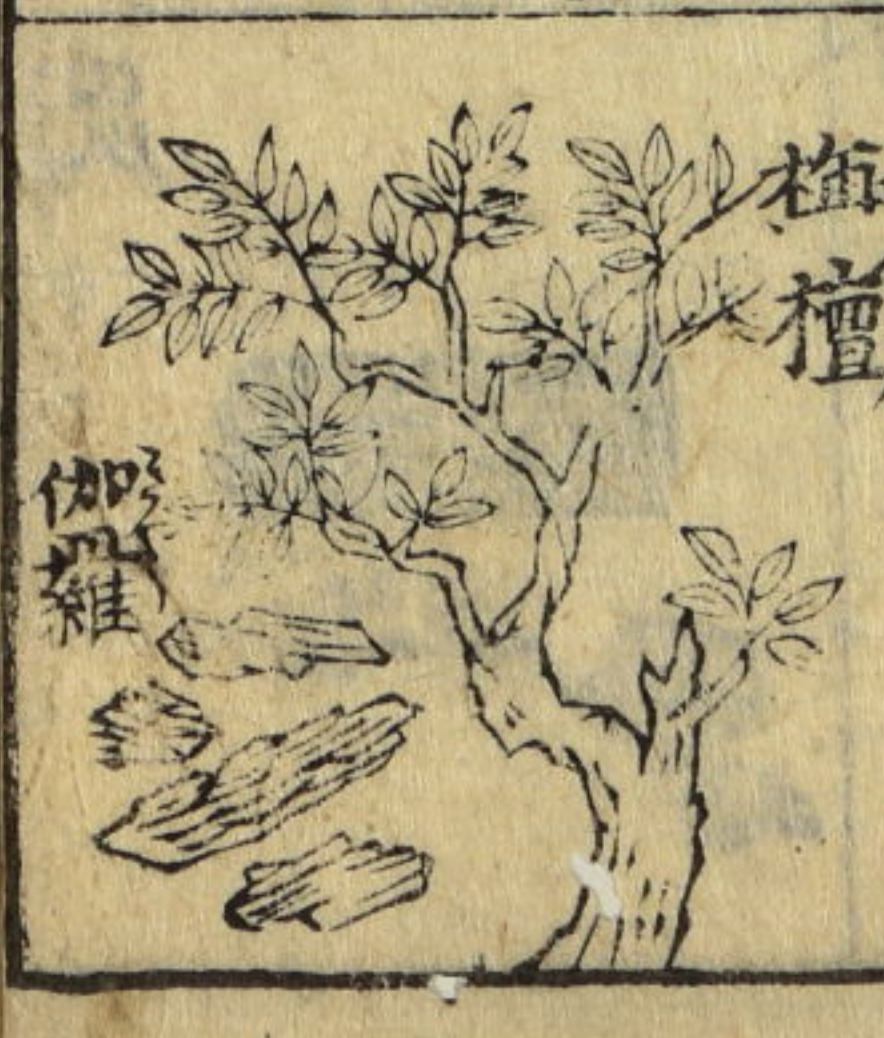 栴檀
伽羅